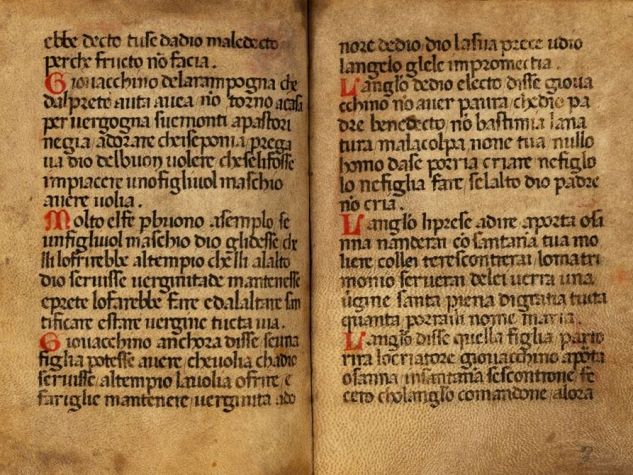 ebbe decto tuse dadio maledecto
perche fructo nō facia.
Giovacchino delarampogna che
dalprete auta avea nō torno acasa
per vergogna suemonti apastori
negia adorare cheiseponia prega
va dio delbuon volere cheselifosse
impiacere uno figliuol maschio
avere volia.
Molto elfe pbuono asemplo se
unfigliuol maschio dio glidesse che
lli loffirebbe altempio chelli alalto
dio servisse verginitade mantenesse
eprete lofarebbe fare edalaltare san
tificare estare vergine tucta via.
Giovacchino anchora disse seuna
figlia potesse avere chevolia chadio
servisse altempio lavolia offrire e
fariglie mantenere verginita ado
nore dedio dio lasua prece udio
langelo glele impromectia.
Langlo dedio electo disse giova
cchino nō aver paura chedio pa
dre benedecto nō bastimia lana
tura malacolpa none tua nullo
homo dase porria criare nefiglo
lo nefiglia fare selalto dio padre
nō cria.
Langlo liprese adire aporta osa
nna nanderai cō santana tua mo
liere collei terescontrerai lomatri
monio serverai delei verra una
vgine santa piena digratia tucta
quanta porralli nome maria.
Langlo disse quella figlia parto
rira locriatore giovacchino aporta
osanna insantana sescontrone fe
ceto cholanglo comandone alora